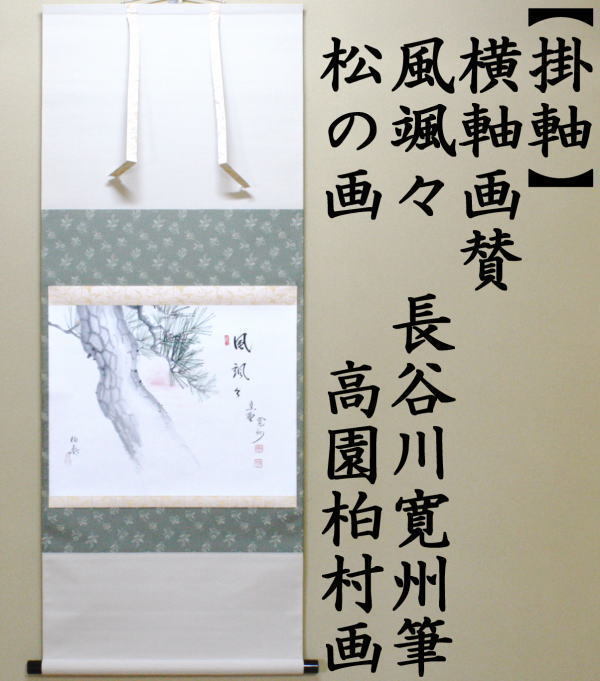 【掛軸】
横軸画賛
風颯々 長谷川寛州筆
松の画 高園柏村画
風颯々